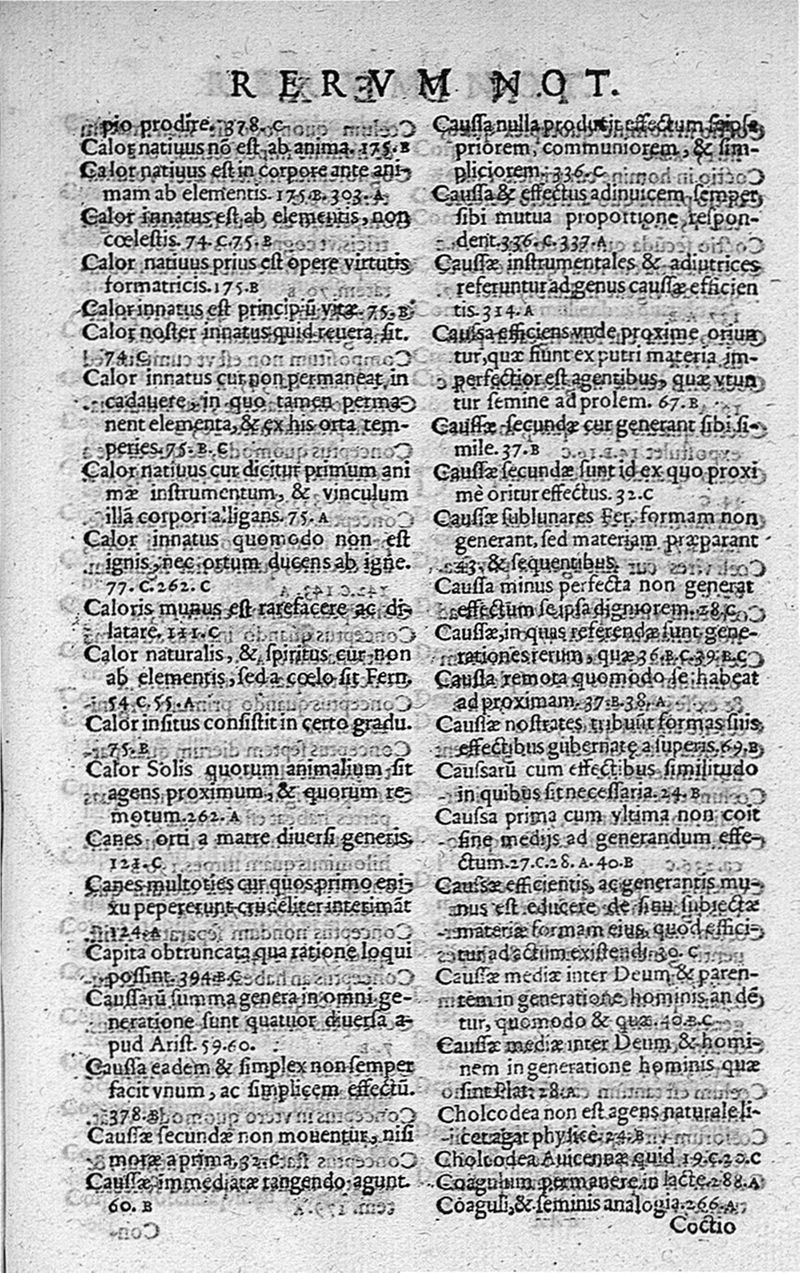 RERVM NOT.
pio prodire. 378. C
Calor natiuus nõ est ab anima. 175. B
Calor natiuus est in corpore ante ani-
mam ab elementis. 175. B. 303. A
Calor innatus est ab elementis, non
cœlestis. 74. C. 75. B
Calor natiuus prius est opere virtutis
formatricis. 175. B
Calor innatus est principiũ vitæ. 75. B
Calor noster innatus quid reuera sit.
74. C
Calor innatus cur non permaneat in
cadauere, in quo tamen perma-
nent elementa, & ex his orta tem-
peries. 75. B. C
Calor natiuus cur dicitur primum ani
mæ instrumentum, & vinculum
illã corpori alligans. 75. A
Calor innatus quomodo non est
ignis, nec ortum ducens ab igne.
77. C. 262. C
Caloris munus est rarefacere ac di-
latare. 121. C
Calor naturalis, & spiritus cur non
ab elementis, sed a cœlo sit Fern.
54. C. 55. A
Calor insitus consistit in certo gradu.
75. B
Calor Solis quorum animalium sit
agens proximum, & quorum re-
motum. 262. A
Canes orti a matre diuersi generis.
121. C
Canes multoties cur quos primo eni-
xu pepererunt crudeliter interimãt
124. A
Capita obtruncata qua ratione loqui
possint. 394. B. C
Caussarũ summa genera in omni ge-
neratione sunt quatuor diuersa a-
pud Arist. 59. 60.
Caussa eadem & simplex non semper
facit vnum, ac simplicem effectũ.
378. B
Caussæ secundæ non mouentur, nisi
motæ a prima. 32. C
Caussæ immediatæ tangendo agunt.
60. B
Caussa nulla producit effectum seipsa
priorem, communiorem, & sim-
pliciorem. 336. C
Caussa & effectus adinuicem semper
sibi mutua proportione respon-
dent. 336. C. 337. A
Caussæ instrumentales & adiutrices
referuntur ad genus caussæ efficien
tis. 314. A
Caussa efficiens vnde proxime oriun
tur, quæ fiunt ex putri materia im-
perfectior est agentibus, quæ vtun
tur semine ad prolem. 67. B
Caussæ secundæ cur generant sibi si-
mile. 37. B
Caussæ secundæ sunt id ex quo proxi
mè oritur effectus. 32. C
Caussæ sublunares Fer. formam non
generant, sed materiam præparant
43. & sequentibus.
Caussa minus perfecta non generat
effectum se ipsa digniorem. 28. C
Caussæ, in quas referendæ sunt gene-
rationes rerum, quæ 36. B. C. 39. B. C
Caussa remota quomodo se habeat
ad proximam. 37. B. 38. A
Caussæ nostrates tribuũt formas suis
effectibus gubernatę a superis. 69. B
Caussarũ cum effectibus similitudo
in quibus sit necessaria. 24. B
Caussa prima cum vltima non coit
sine medijs ad generandum effe-
ctum. 27. C. 28. A. 40. B
Caussæ efficientis, ac generantis mu-
nus est educere de sinu subiectæ
materiæ formam eius, quod effici-
tur ad actum existendi. 30. C
Caussæ mediæ inter Deum & paren-
tem in generatione hominis an dẽ
tur, quomodo & quæ. 40. B. C
Caussæ mediæ inter Deum, & homi-
nem in generatione hominis quæ
sint Plat. 28. A
Cholcodea non est agens naturale li-
cet agat physice. 24. B
Cholcodea Auicennæ quid 19. C. 20. C
Coagulum permanere in lacte. 288. A
Coaguli, & seminis analogia. 266. A
Coctio